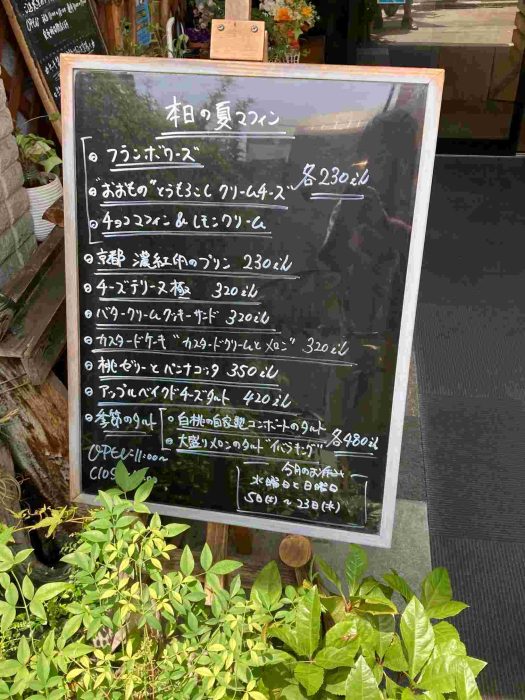 本日の夏マフィン
・フランボワーズ
・"おおもの"とうもろこし クリームチーズ 各230えん
・チョコマフィン&レモンクリーム
・京都 濃紅卵のプリン 230えん
・チーズテリーヌ極 320えん
・バタークリームクッキーサンド 320えん
・カスタードケーキ "カスタードクリームとメロン" 320えん
・桃ゼリーとパンナコッタ 350えん
・アップルベイクドチーズタルト 420えん
・季節のタルト
・白桃の自家製コンポートのタルト
・大盛りメロンのタルト"イバラキング" 各480えん
OPEN:11:00~
CLOS
今月のお休み
水曜日と日曜日
5日(火)~23日(水)